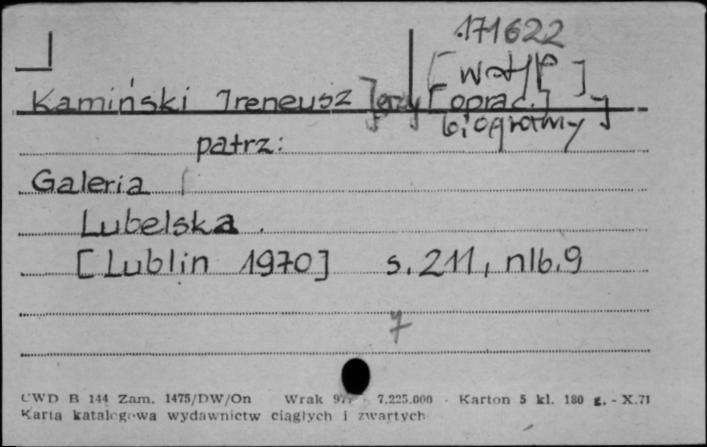 171622
[wstęp]
Kamiński Ireneusz Jerzy [oprac.]
biogramy]
patrz:
Galeria
Lubelska.
[Lublin 1970] s. 211, nlb. 9
7
CWD B 144 Zam. 1475/DW/On Wrak 7.225.000 - Karton 5 kl. 180 g. - X.71
Karta katalogowa wydawnictw ciągłych i zwartych